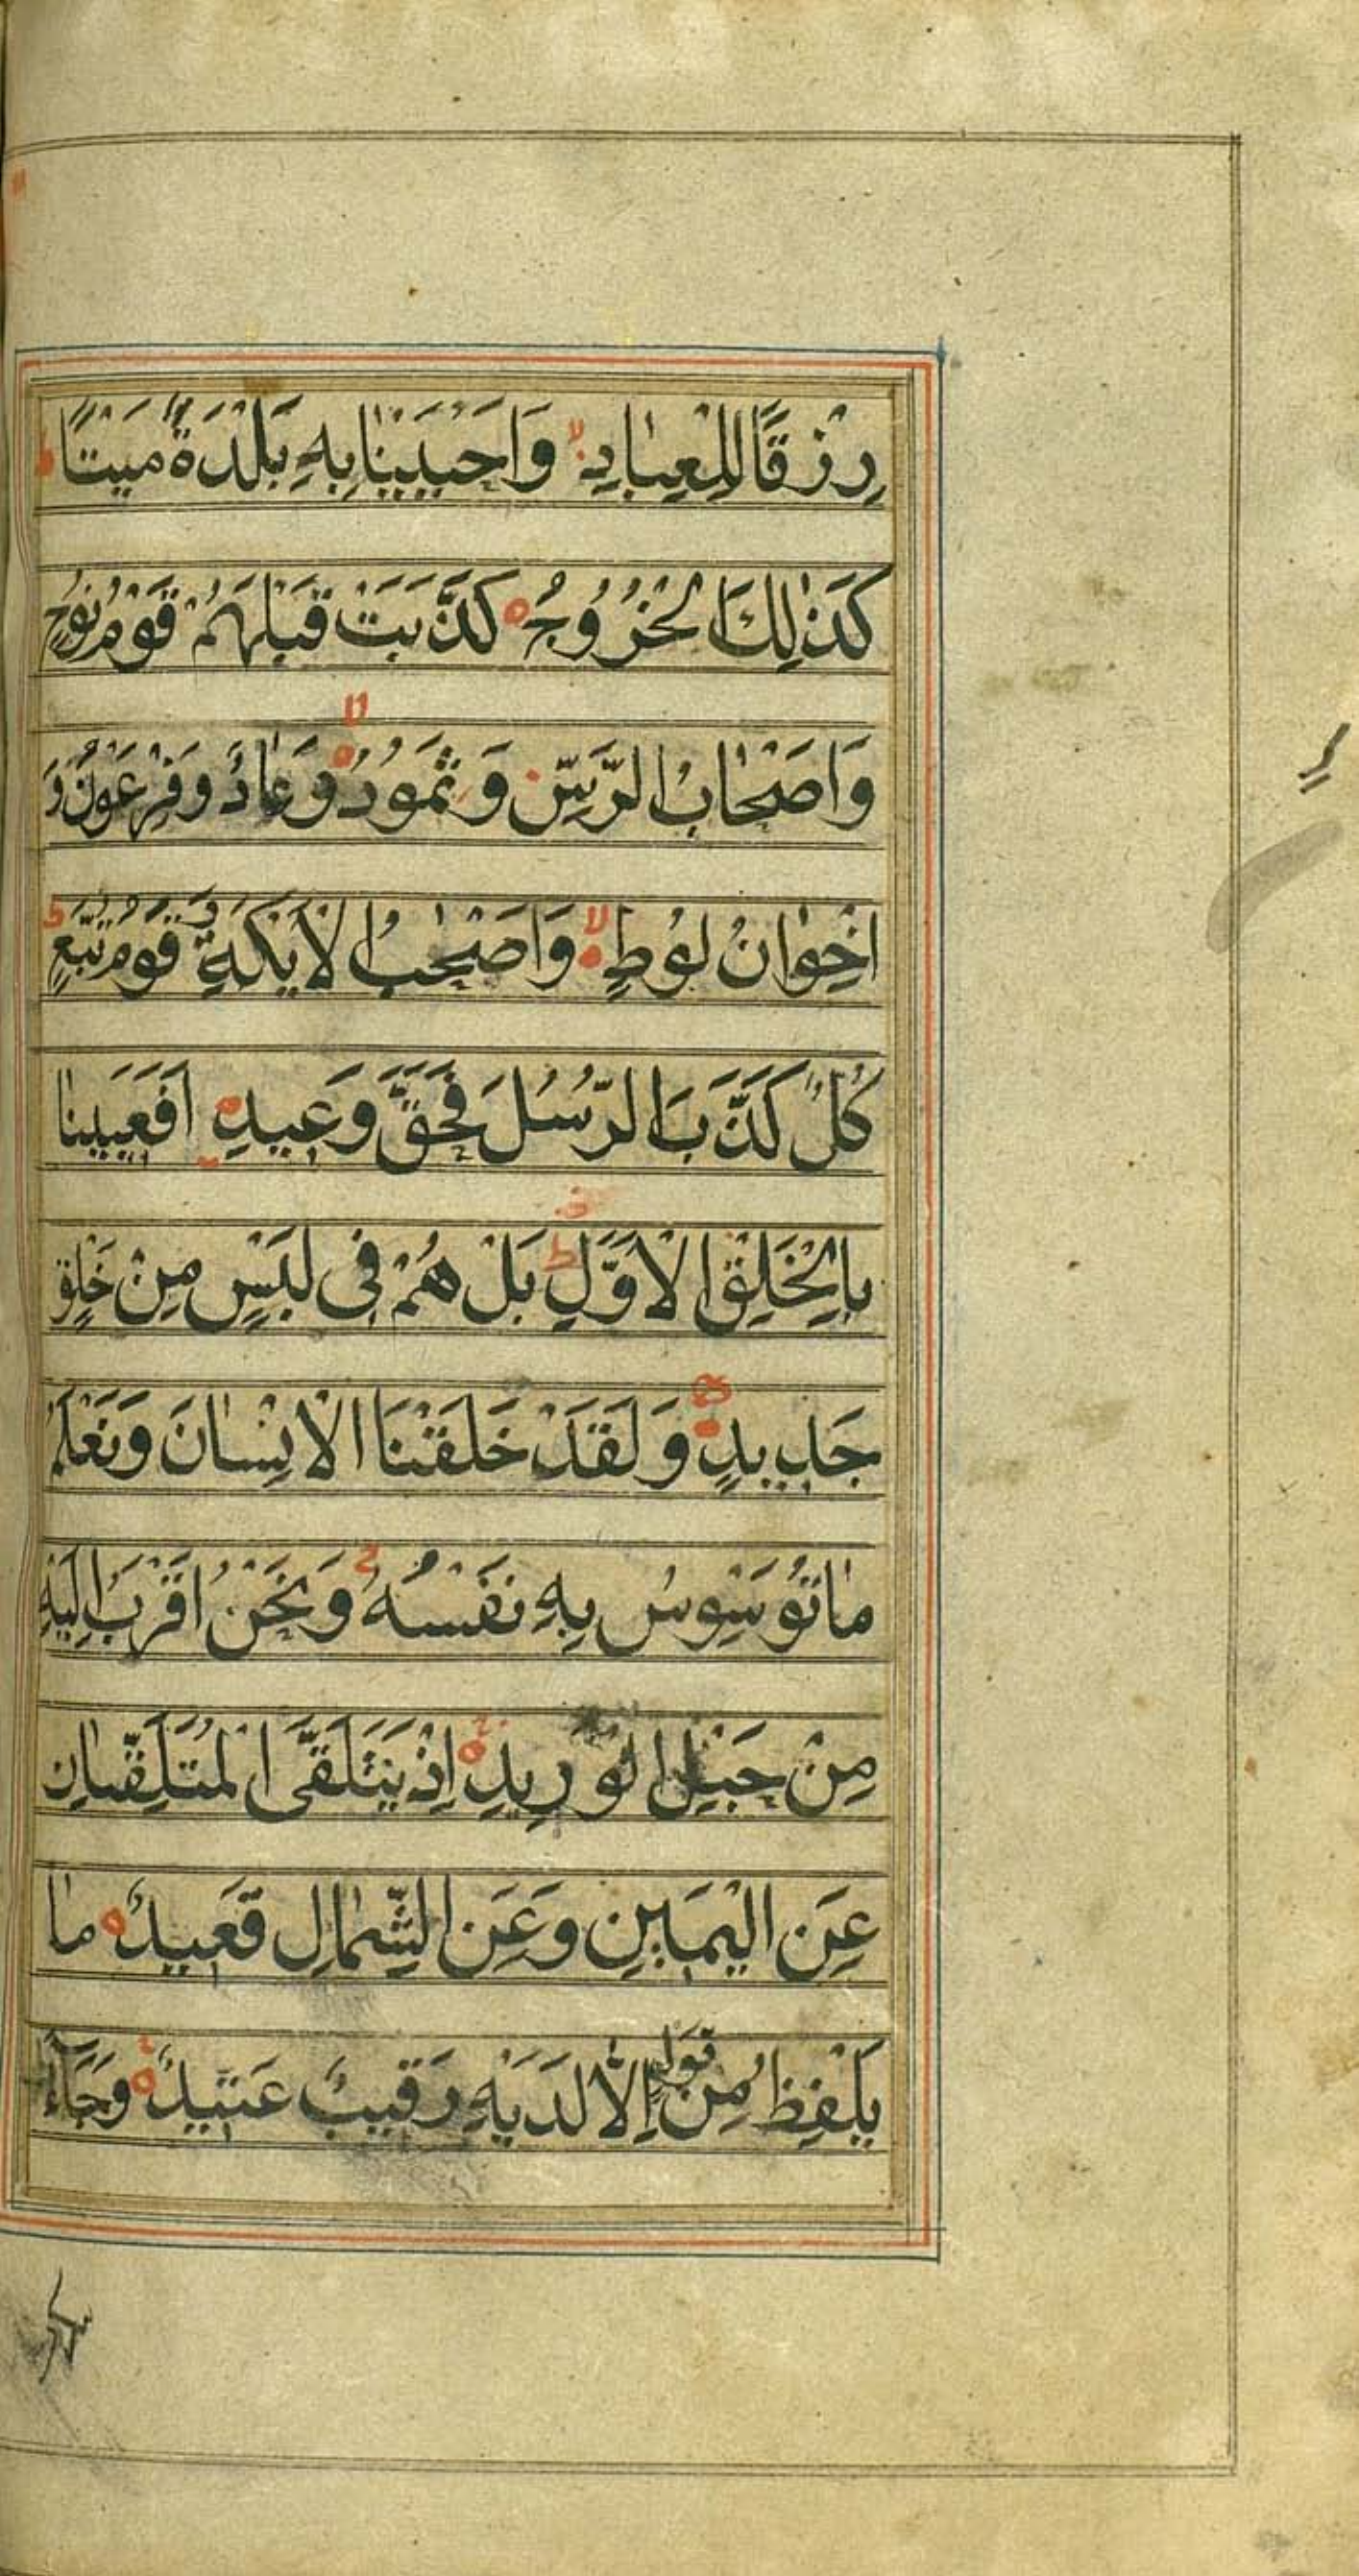 رِزْقًا لِلْعِبادِ لا وَاَحْيَيْنا بِهِ بَلْدَةً مَيْتًا ط
كَذٰلِكَ الْخُرُوجُ كَذَّبَتْ قَبْلَهُمْ قَوْمُ نُوحٍ
وَاَصْحٰابُ الرَّسِّ وَثَمُودُ لا وَعٰادٌ وَفِرْعَوْنُ وَ
اِخْوٰانُ لُوطٍ لا وَاَصْحٰبُ الْاَيْكَةِ وَ قَوْمُ تُبَّعٍ ط
كُلٌّ كَذَّبَ الرُّسُلَ فَحَقَّ وَعِيدِ اَفَعَيِينٰا
بِالْخَلْقِ الْاَوَّلِ ط بَلْ هُمْ فِى لَبْسٍ مِنْ خَلْقٍ
جَدِيدٍ وَلَقَدْ خَلَقْنَا الْاِنْسٰانَ وَنَعْلَمُ
مٰا تُوَسْوِسُ بِهِ نَفْسُهُ وَنَحْنُ اَقْرَبُ اِلَيْهِ
مِنْ حَبْلِ الْوَرِيدِ اِذْ يَتَلَقَّى الْمُتَلَقِّيٰانِ
عَنِ الْيَمِينِ وَعَنِ الشِّمٰالِ قَعِيدٌ مٰا
يَلْفِظُ مِنْ قَوْلٍ اِلّٰا لَدَيْهِ رَقِيبٌ عَتِيدٌ وَجَآءَ